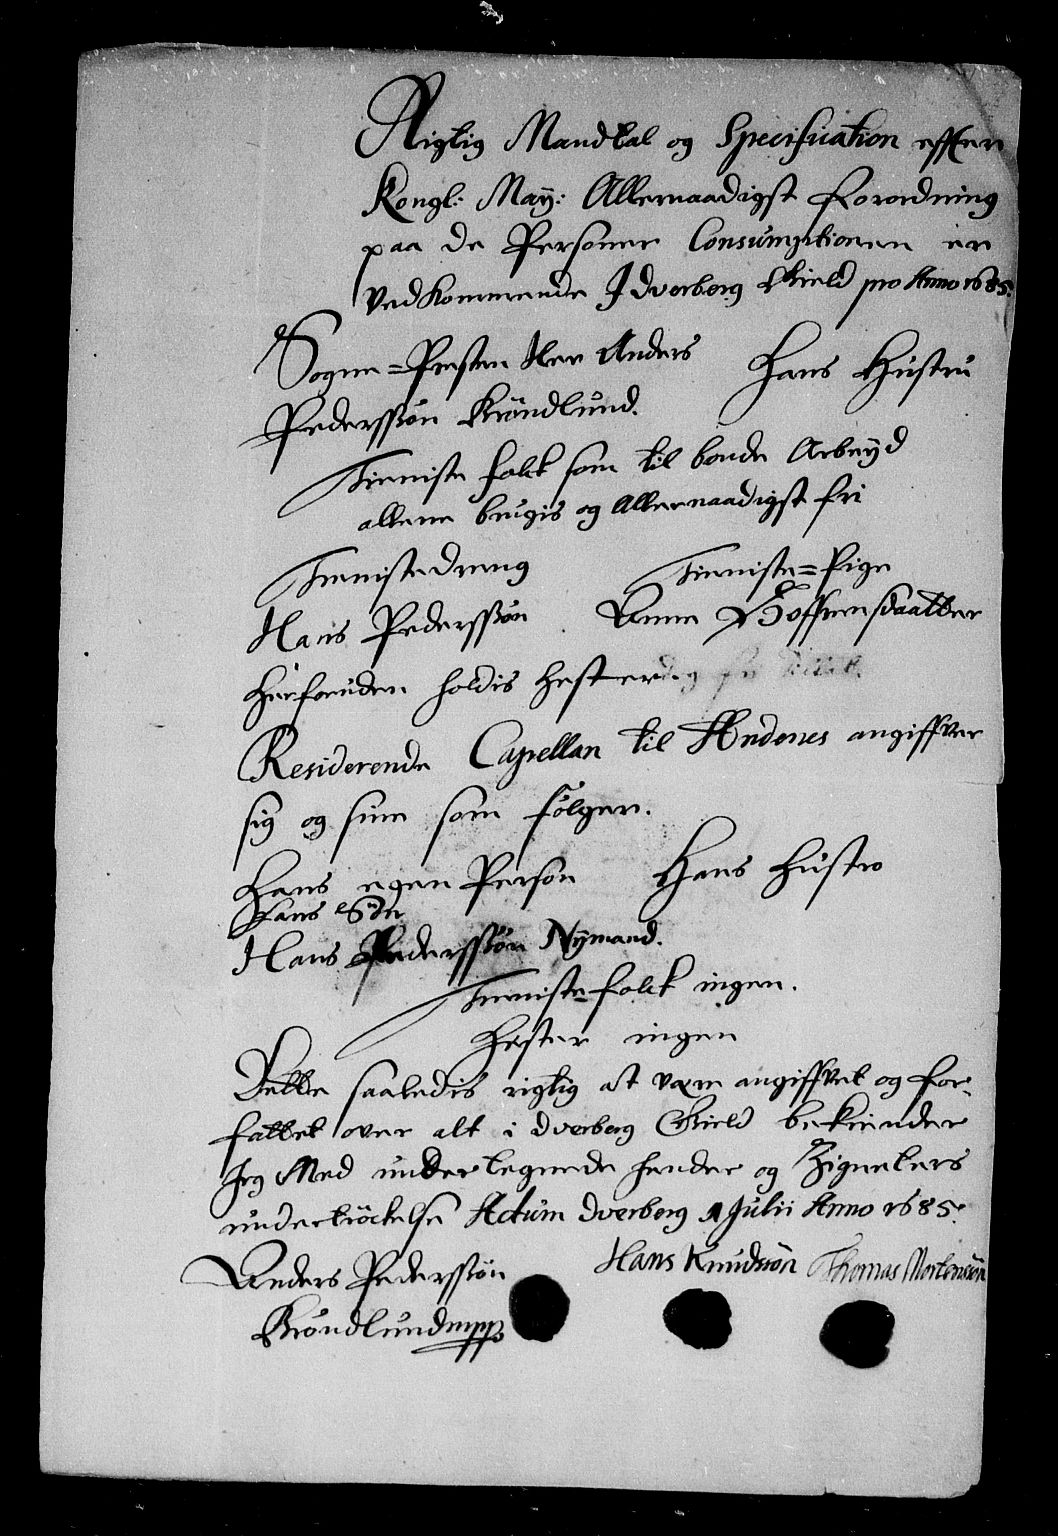 Rigtig Mandtal og Specification effter
Kongl: May: Allernaadigst Forordning
paa de Personer Consumptionen er
vedkommende J dverberg Gield pro Anno 1685.
Sogne=Presten Her Anders
Pederssøn Krôndlund.
Hans Hustru
Tieniste folck som til bonde Arbeyd
allene brugis og allernaadigst fri
Tienistedreng
Tieniste=Pige
Hans Pederssøn
Anne Stoffuersdaatter
Herforuden holdis hester
Residerende Capellan til Andenes angiffver
sig og sine som følger.
Hans egen Person
Hans Hustro
Hans Sön
Hans Pederssøn Nÿmand.
Tieniste folck ingen.
Hester ingen
Dette saaledis rigtig at være angiffvet og for-
fattet over alt i dverberg Gield bekiender
Jeg Med underlegnede hender og Zigneters
undertröckelse Actum dverberg 1 Julii Anno 1685.
Anders Pederssøn
Krôndlund mpp
Hans Knudssön
Thomas Mortensøn